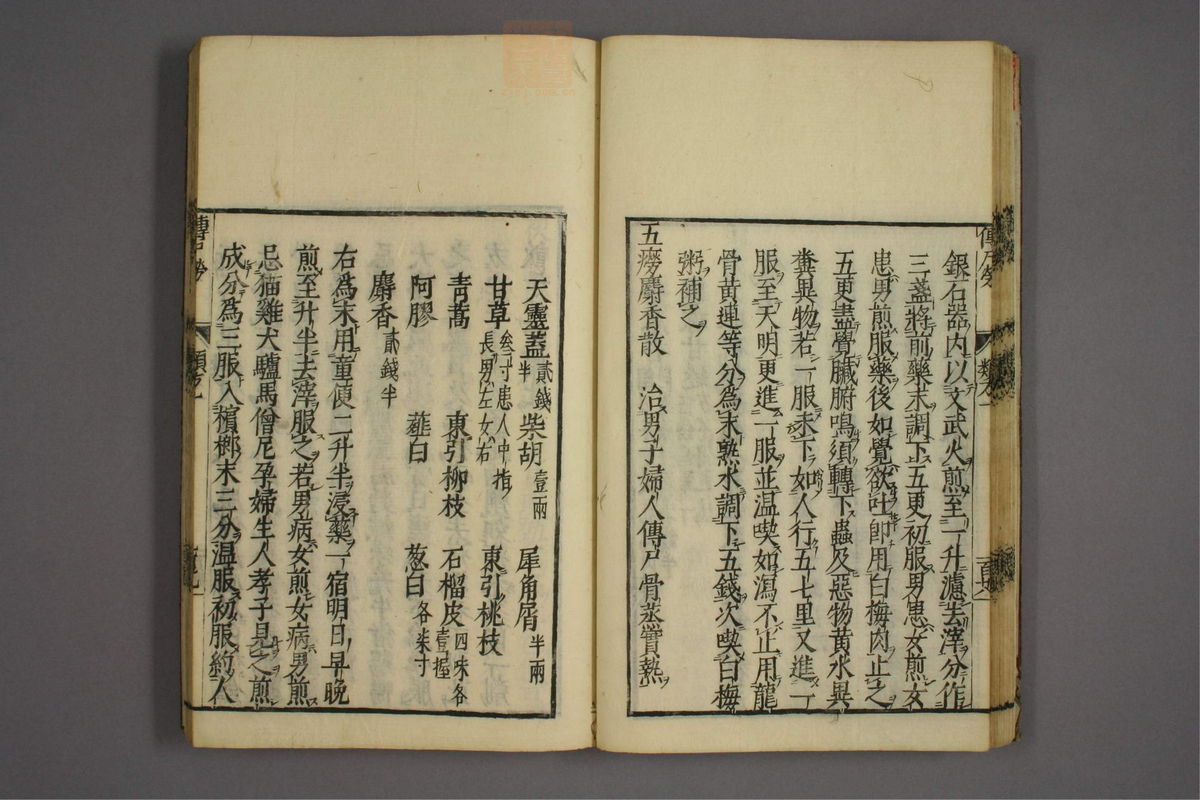 銀石器内以文武火煎至一升濾去滓分作
三盞將前藥末調下五更初服男患女煎女
患男煎服藥後如覺欲吐即用白梅肉止之
五更盡覺臟腑鳴須轉下蟲及惡物黄水異
糞異物若一服未下如人行五七里又進一
服至天明更進一服並温喫如瀉不止用龍
骨黄連等分爲末熟水調下五錢次喫白梅
粥補之
五癆麝香散 治男子婦人傳尸骨蒸實熱
天靈蓋貳錢半 柴胡壹兩 犀角屑半兩
甘草叁寸患人中指長男左女右 東引桃枝
青蒿 東引柳枝 石榴皮四味各壹握
阿膠 薤白 葱白各柒寸
麝香貳錢半
右爲末用童便二升半浸藥一宿明日早晚
煎至升半去滓服之若男病女煎女病男煎
忌猫雞犬驢馬僧尼孕婦生人孝子見之煎
成分爲三服入檳榔末三分温服初服約人